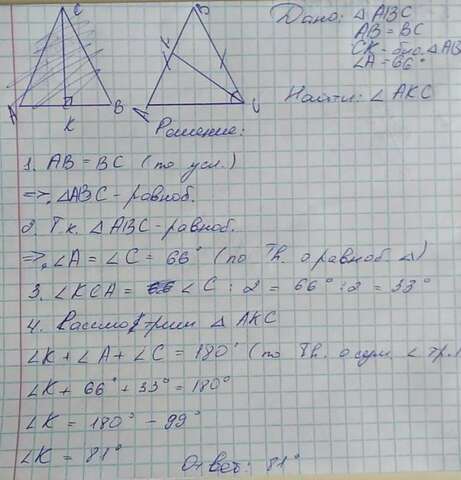 C
A
B
K
B
K
A
C
Дано: △ABC
AB = BC
CK - бис. △AB
∠A = 66°
Найти: ∠AKC
Решение:
1. AB = BC (по усл.)
=>, △ABC - равноб.
2. Т.к. △ABC - равноб.
=>, ∠A = ∠C = 66° (по Th. о равноб. △)
3. ∠KCA = ∠C : 2 = 66° : 2 = 33°
4. Рассмотрим △ AKC
∠K + ∠A + ∠C = 180° (по Th. о сум. ∠ тр.
∠K + 66° + 33° = 180°
∠K = 180° - 99°
∠K = 81°
Ответ: 81°